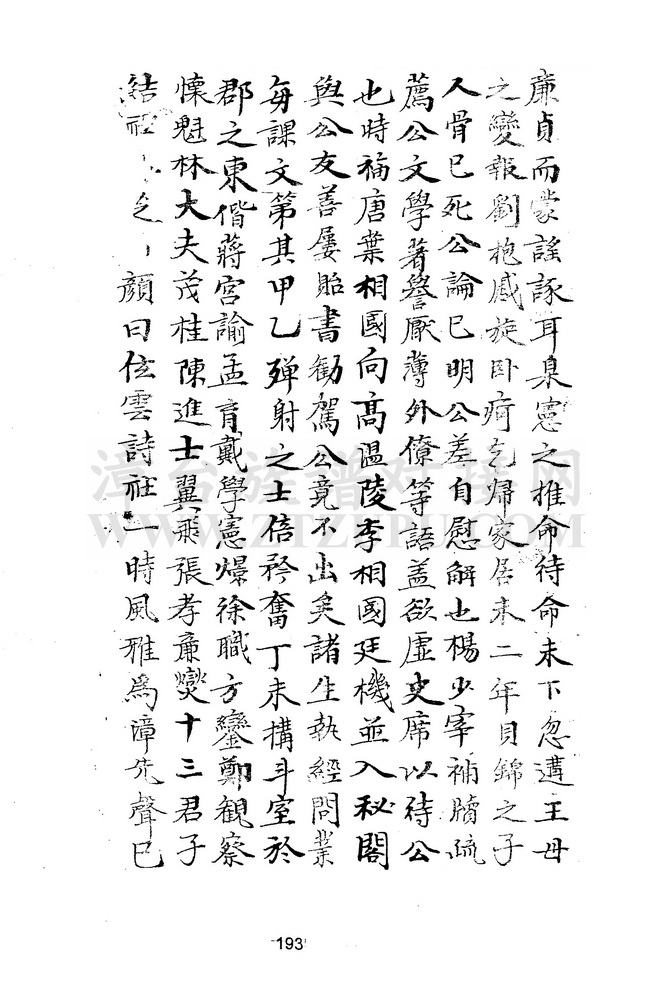 廉貞而蒙謠諑耳臬憲之推命待命未下忽遘王母
之變報劉抱慼旋卧痾乞歸家居未二年貝錦之子
人骨已死公論已明公差自慰解也楊少宰補牘疏
薦公文學著譽厭薄外僚等語蓋欲虛史席以待公
也時福唐葉相國向高溫陵李相國廷機並入秘閣
與公友善屢貽書勸駕公竟不出矣諸生執經問業
每課文第其甲乙殫射之士倍矜奮丁未構斗室於
郡之東偕蔣宮諭孟育戴學憲燝徐職方鑾鄭觀察
懷魁林大夫茂桂陳進士翼飛張孝廉燮十三君子
結社 顏曰位雲詩社一時風雅為漳先聲已
漳台族谱对接网
WWW.ZTZUPU.COM
193